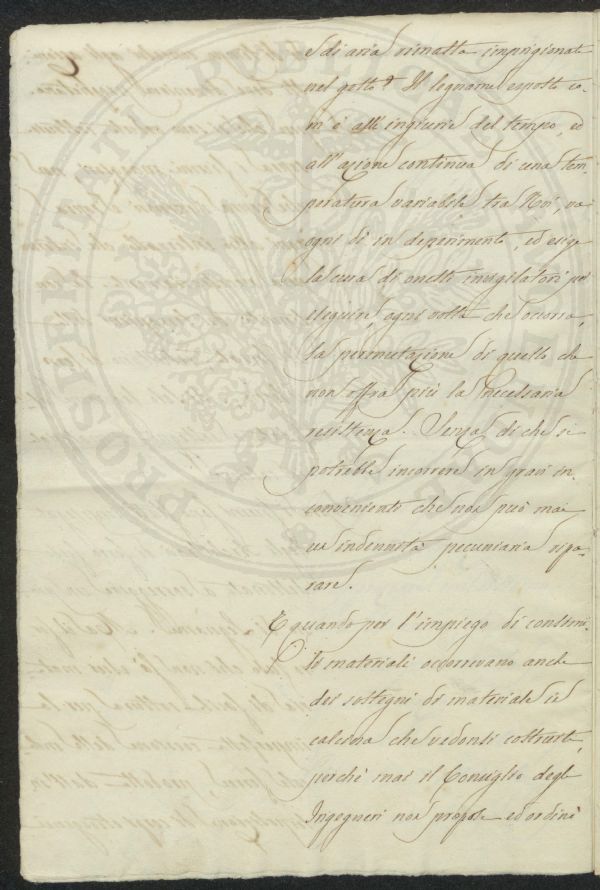 e di aria rimasta imprigionata
nel getto? Il legname esposto co-
m'è alle ingiurie del tempo, ed
all'azione continua di una tem-
peratura variabile tra Noi, va
ogni dì in deperimento, ed esige
la cura di onesti invigilatori per
eseguire, ogni volta che occorra,
la permutazione di quello che
non offra più la necessaria
resistenza. Senza di che si
potrebbe incorrere in gravi in-
convenienti che non può mai
un indennità pecuniaria ripa-
rare.
E quando per l'impiego di consimi-
li materiali occorrevano anche
dei sostegni di materiale in
calcina che vedonsi costruiti,
perchè mai il Consiglio degl'
Ingegneri non propose ed ordinò
PROSPERITATI PUBLICAE